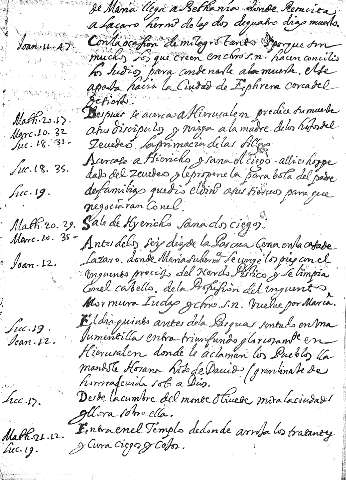 de Maria llegó a Bethania donde Resucita
a Lazaro herm.º de las dos de quatro dias muerto.
Joan. 11. 47. Con la ocasion de milagro tanto y porque son
muchos los que creen en Christo S.N. hacen concilio
los Judios para condenarle a la muerte, el se
aparta hacia la Ciudad de Ephren cerca del
desierto.
Math. 20. 17. Despues se acerca a Hierusalem predice su muerte
Marc. 10. 32 a sus Discipulos y niega a la madre de los hijos del
Luc. 18. 31. Zebedeo la primacia de las sillas.
Luc. 18. 35. Acercase a Hiericho y sana el ciego
Luc. 19. de familias que dio el dinero a sus siervos para que
negociaran con el.
Math. 20. 29. Sale de Hyericho sana dos ciegos.
Marc. 10. 35
Antes de los seis dias de la Pascua Cena en la casa de
Joan. 12. Lazaro, donde Maria su herm.ª le ungió los pies con el
unguento precioso del Nardo Pistico y se limpia
con el cabello, de la Profusion del unguento
Murmura Judas y Christo S.N. vuelve por Maria.
Luc. 19. El dia quinto antes de la Pasqua sentado en una
Joan. 12. Jumentilla entra triunfando gloriosam.te en
Hierusalen donde le aclaman los Pueblos
Hosana hijo de David
Luc. 19. Desde la cumbre del monte Olivete mira la ciudad
y llora sobre ella.
Math. 21. 12. Entra en el Templo de donde arroja los tratantes
Luc. 19. y Cura ciegos y cojos.